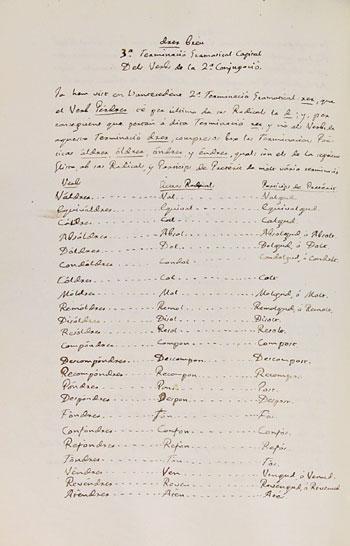 drer Brèu
3ª Terminació Gramatical Capital
Dels Verbs de la 2ª Conjugació.
Ja hem vist en l'antecedent 2ª Terminació Gramatical rer, que
el Verb Pérdrer té per última de sa Radical la d; y, per
conseguent que pertan á dita Terminació rer, y no al Verbs de
aquesta Terminació drer, compresa baix la Terminacions
áldrer óldrer, óndrer, y éndrer, qual
sa Radical, y Particip de Preterit de molt
Verbs Radical Particip de Preterit
Váldrer Val Valgud.
Equiváldrer Equival Equivalgud.
Cáldrer Cal Calgud
Absóldrer Absol Absolgud, ó Absolt.
Dóldrer Dol Dolgud, ó Dolt
Condóldrer Condol Condolgud, ó Condolt.
Cóldrer Col Colt
Móldrer Mol Molgud, ó Molt.
Remóldrer Remol Remolgud, ó Remolt.
Disóldrer Disol Disolt.
Resóldrer Resol Resolt.
Compóndrer Compon Compost
Descompóndrer Descompon Descompost.
Recompóndrer Recompon Recompost.
Póndrer Pon Post.
Despóndrer Despon Despost
Fóndrer Fon Fos
Confóndrer Confon Confós.
Refóndrer Refon Refós
Tóndrer Ton Tos.
Véndrer Ven Vengud, ó Venud.
Revéndrer Reven Revengud, ó Revenud
Aréndrer Aren Are